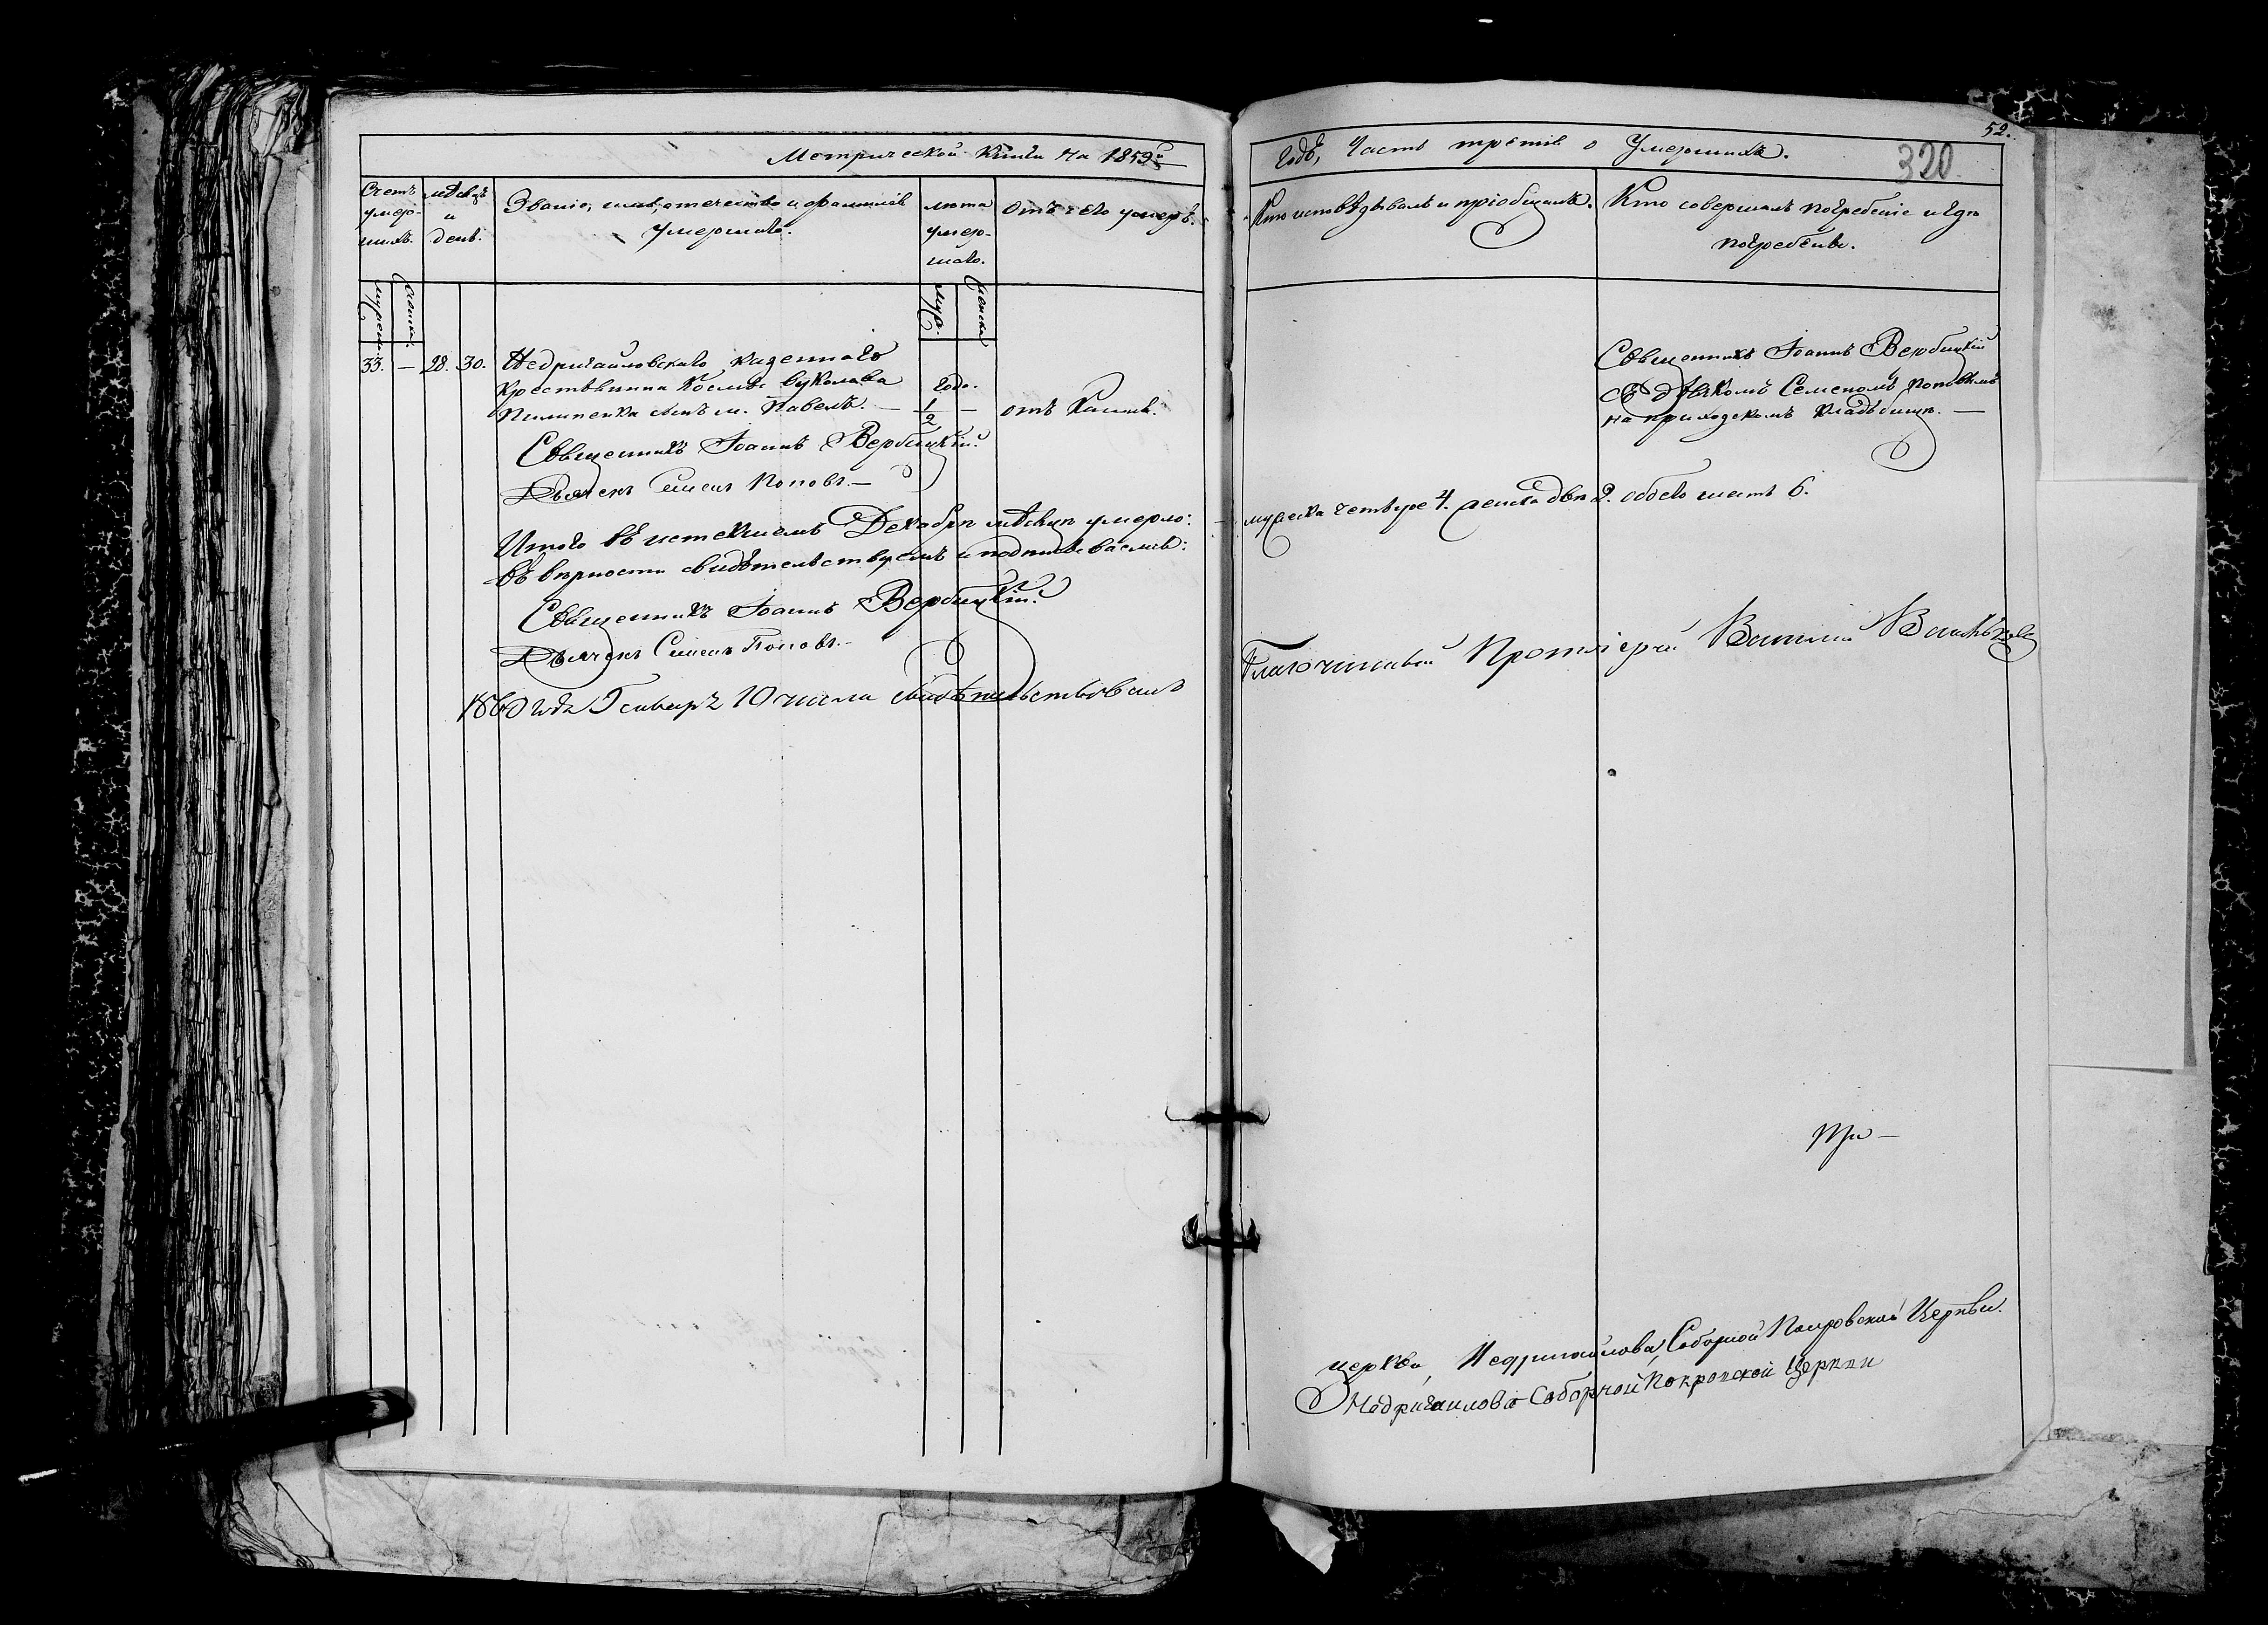 Метрической книги на 1859й
Счетъ умер- шихъ.
мѣсяцъ и день.
Званіе, имя, отечество и фамилія умершаго.
лѣта умер- шаго.
Отъ чего умеръ.
мужеска.
женска.
муж.
женска
33. — 28. 30. Недригайловскаго казеннаго
крестьянина Космы Вуколова
Года.
Пилипенка сынъ м. Павелъ. — 1/2 — отъ Кашля.
Священникъ Іоаннъ Вербицкій.
Дьячекъ Симеонъ Поповъ. —
Итого въ истекшемъ Декабрѣ мѣсяцѣ умерло:
въ вѣрности свидѣтельствуемъ и подписываемся:
Священникъ Іоаннъ Вербицкій.
Дьячекъ Симеонъ Поповъ. —
1860 года Генваря 10 числа свидѣтельствовалъ
52.
320
Годъ, Часть третія о Умершихъ.
Кто исповѣдывалъ и пріобщалъ.
Кто совершалъ погребеніе и гдѣ погребены.
Священникъ Іоаннъ Вербицкій
съ дьячкомъ Семеномъ Поповымъ
на приходскомъ кладбищѣ. —
мужеска четыре 4. женска двѣ 2. обоего шесть 6.
Благочинный Протоіерей Василій
три —
церкви, Недригайлова, Соборной Покровской Церкви.
Недригайлова Соборной Покровской Церкви